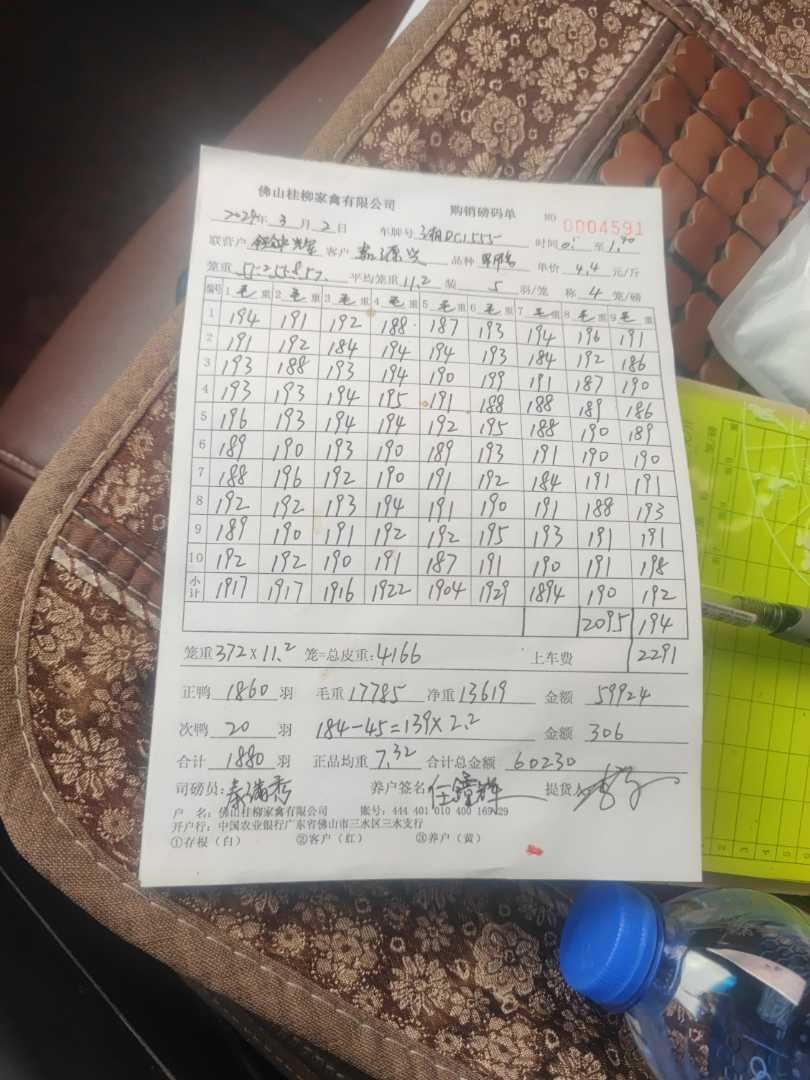 佛山桂柳家禽有限公司 购销磅码单 NO 0004591
2024年 3 月 2 日 车牌号 DC1555 时间 至
联营户 客户 品种 单价 4.4 元/斤
笼重 平均笼重 11.2 装 5 羽/笼 称 4 笼/磅
编号 1 毛 重 2 毛 重 3 毛 重 4 毛 重 5 毛 重 6 毛 重 7 毛 重 8 毛 重 9 毛 重
1 194 191 192 188 187 193 194 196 191
2 191 192 184 194 194 193 184 192 186
3 193 188 193 194 190 199 191 187 190
4 193 193 194 195 191 188 188 189 186
5 196 193 194 194 192 195 188 190 189
6 189 190 193 190 189 193 191 190 190
7 188 196 192 190 191 192 184 191 191
8 192 192 193 194 191 190 191 188 193
9 189 190 191 192 192 195 193 191 191
10 192 192 190 191 187 191 190 191 198
小计 1917 1917 1916 1922 1904 1929 1894 190 192
2095 194
笼重 372 x 11.2 笼=总皮重: 4166 上车费 2291
正鸭 1860 羽 毛重 17785 净重 13619 金额 59924
次鸭 20 羽 184-45=139x2.2 金额 306
合计 1880 羽 正品均重 7.32 合计总金额 60230
司磅员: 养户签名 提货人
户 名: 佛山桂柳家禽有限公司 账号: 444 401 010 400 169 29
开户行: 中国农业银行广东省佛山市三水区三水支行
①存根（白） ②客户（红） ③养户（黄）